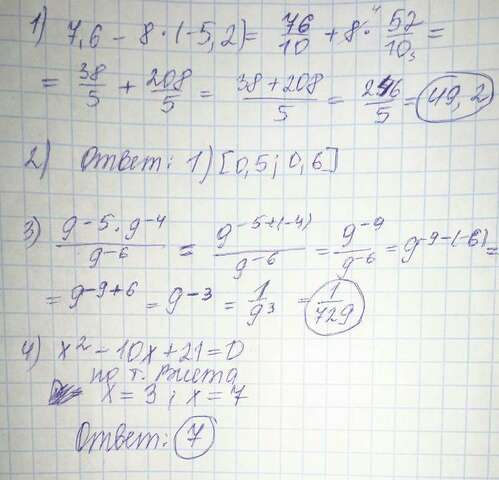 1) 7,6 - 8·(-5,2) = 76/10 + 8·⁴ 52/10₅ =
= 38/5 + 208/5 = (38+208)/5 = 246/5 = 49,2
2) Ответ: 1) [0,5; 0,6]
3) (9⁻⁵·9⁻⁴)/9⁻⁶ = 9⁻⁵⁺⁽⁻⁴⁾/9⁻⁶ = 9⁻⁹/9⁻⁶ = 9⁻⁹⁻⁽⁻⁶⁾ =
= 9⁻⁹⁺⁶ = 9⁻³ = 1/9³ = 1/729
4) x² - 10x + 21 = 0
по т. Виета
x = 3; x = 7
Ответ: 7